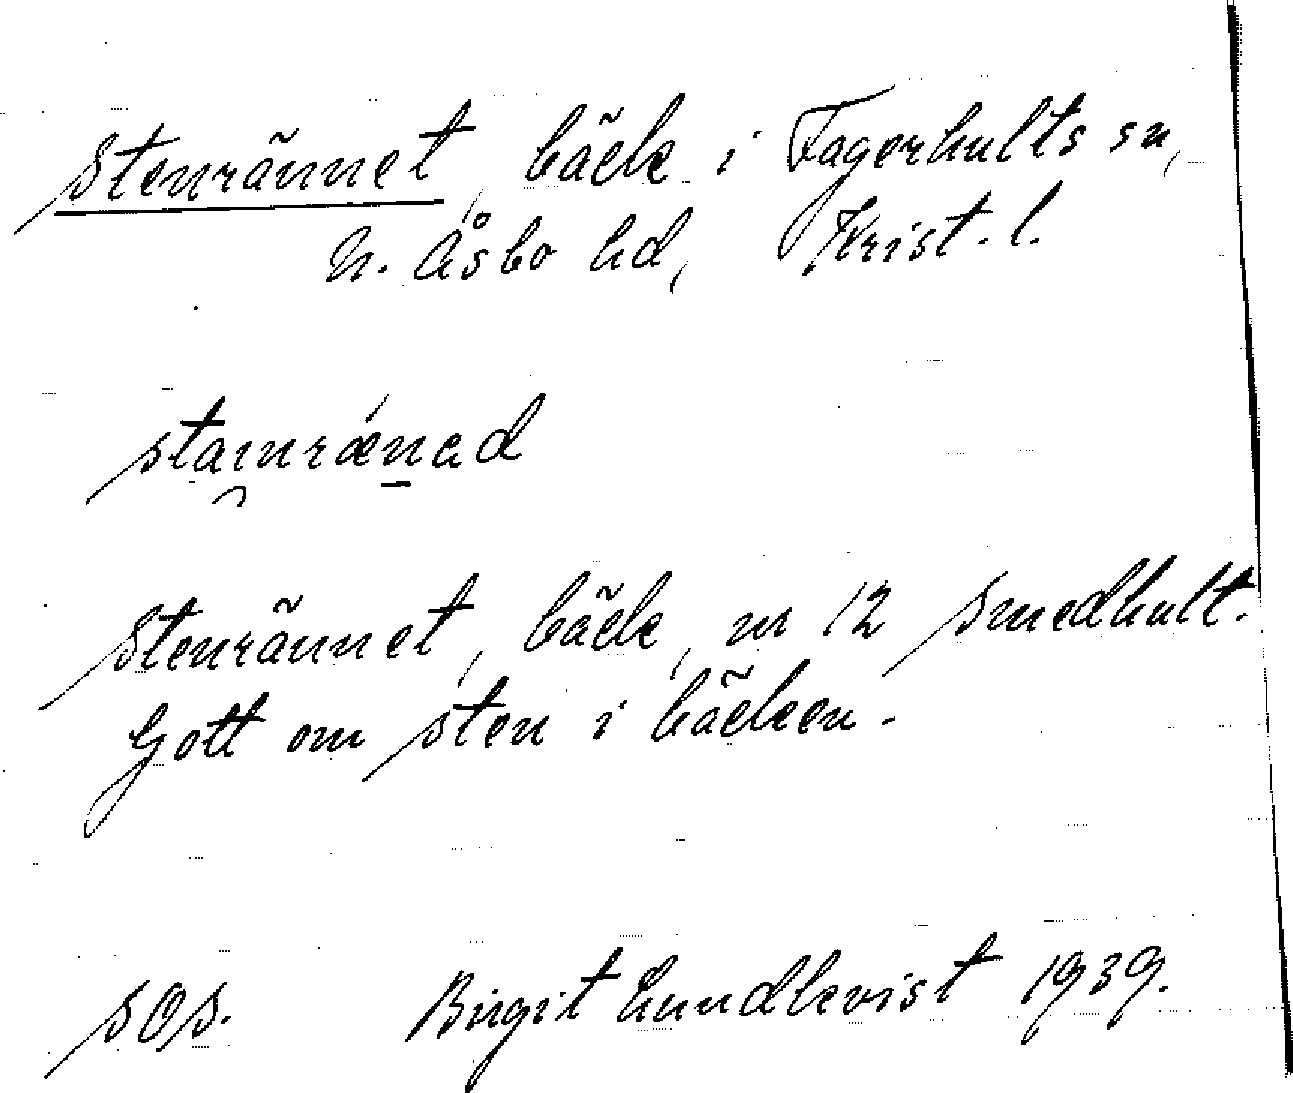 Stenrännet, bäck i Fagerhults sn,
N. Åsbo hd, Krist. l.
stai̯nræ´n̲ad
Stenrännet, bäck, nr 12 Smedhult.
Gott om sten i bäcken.
SOS. Birgit Lundkvist 1939.